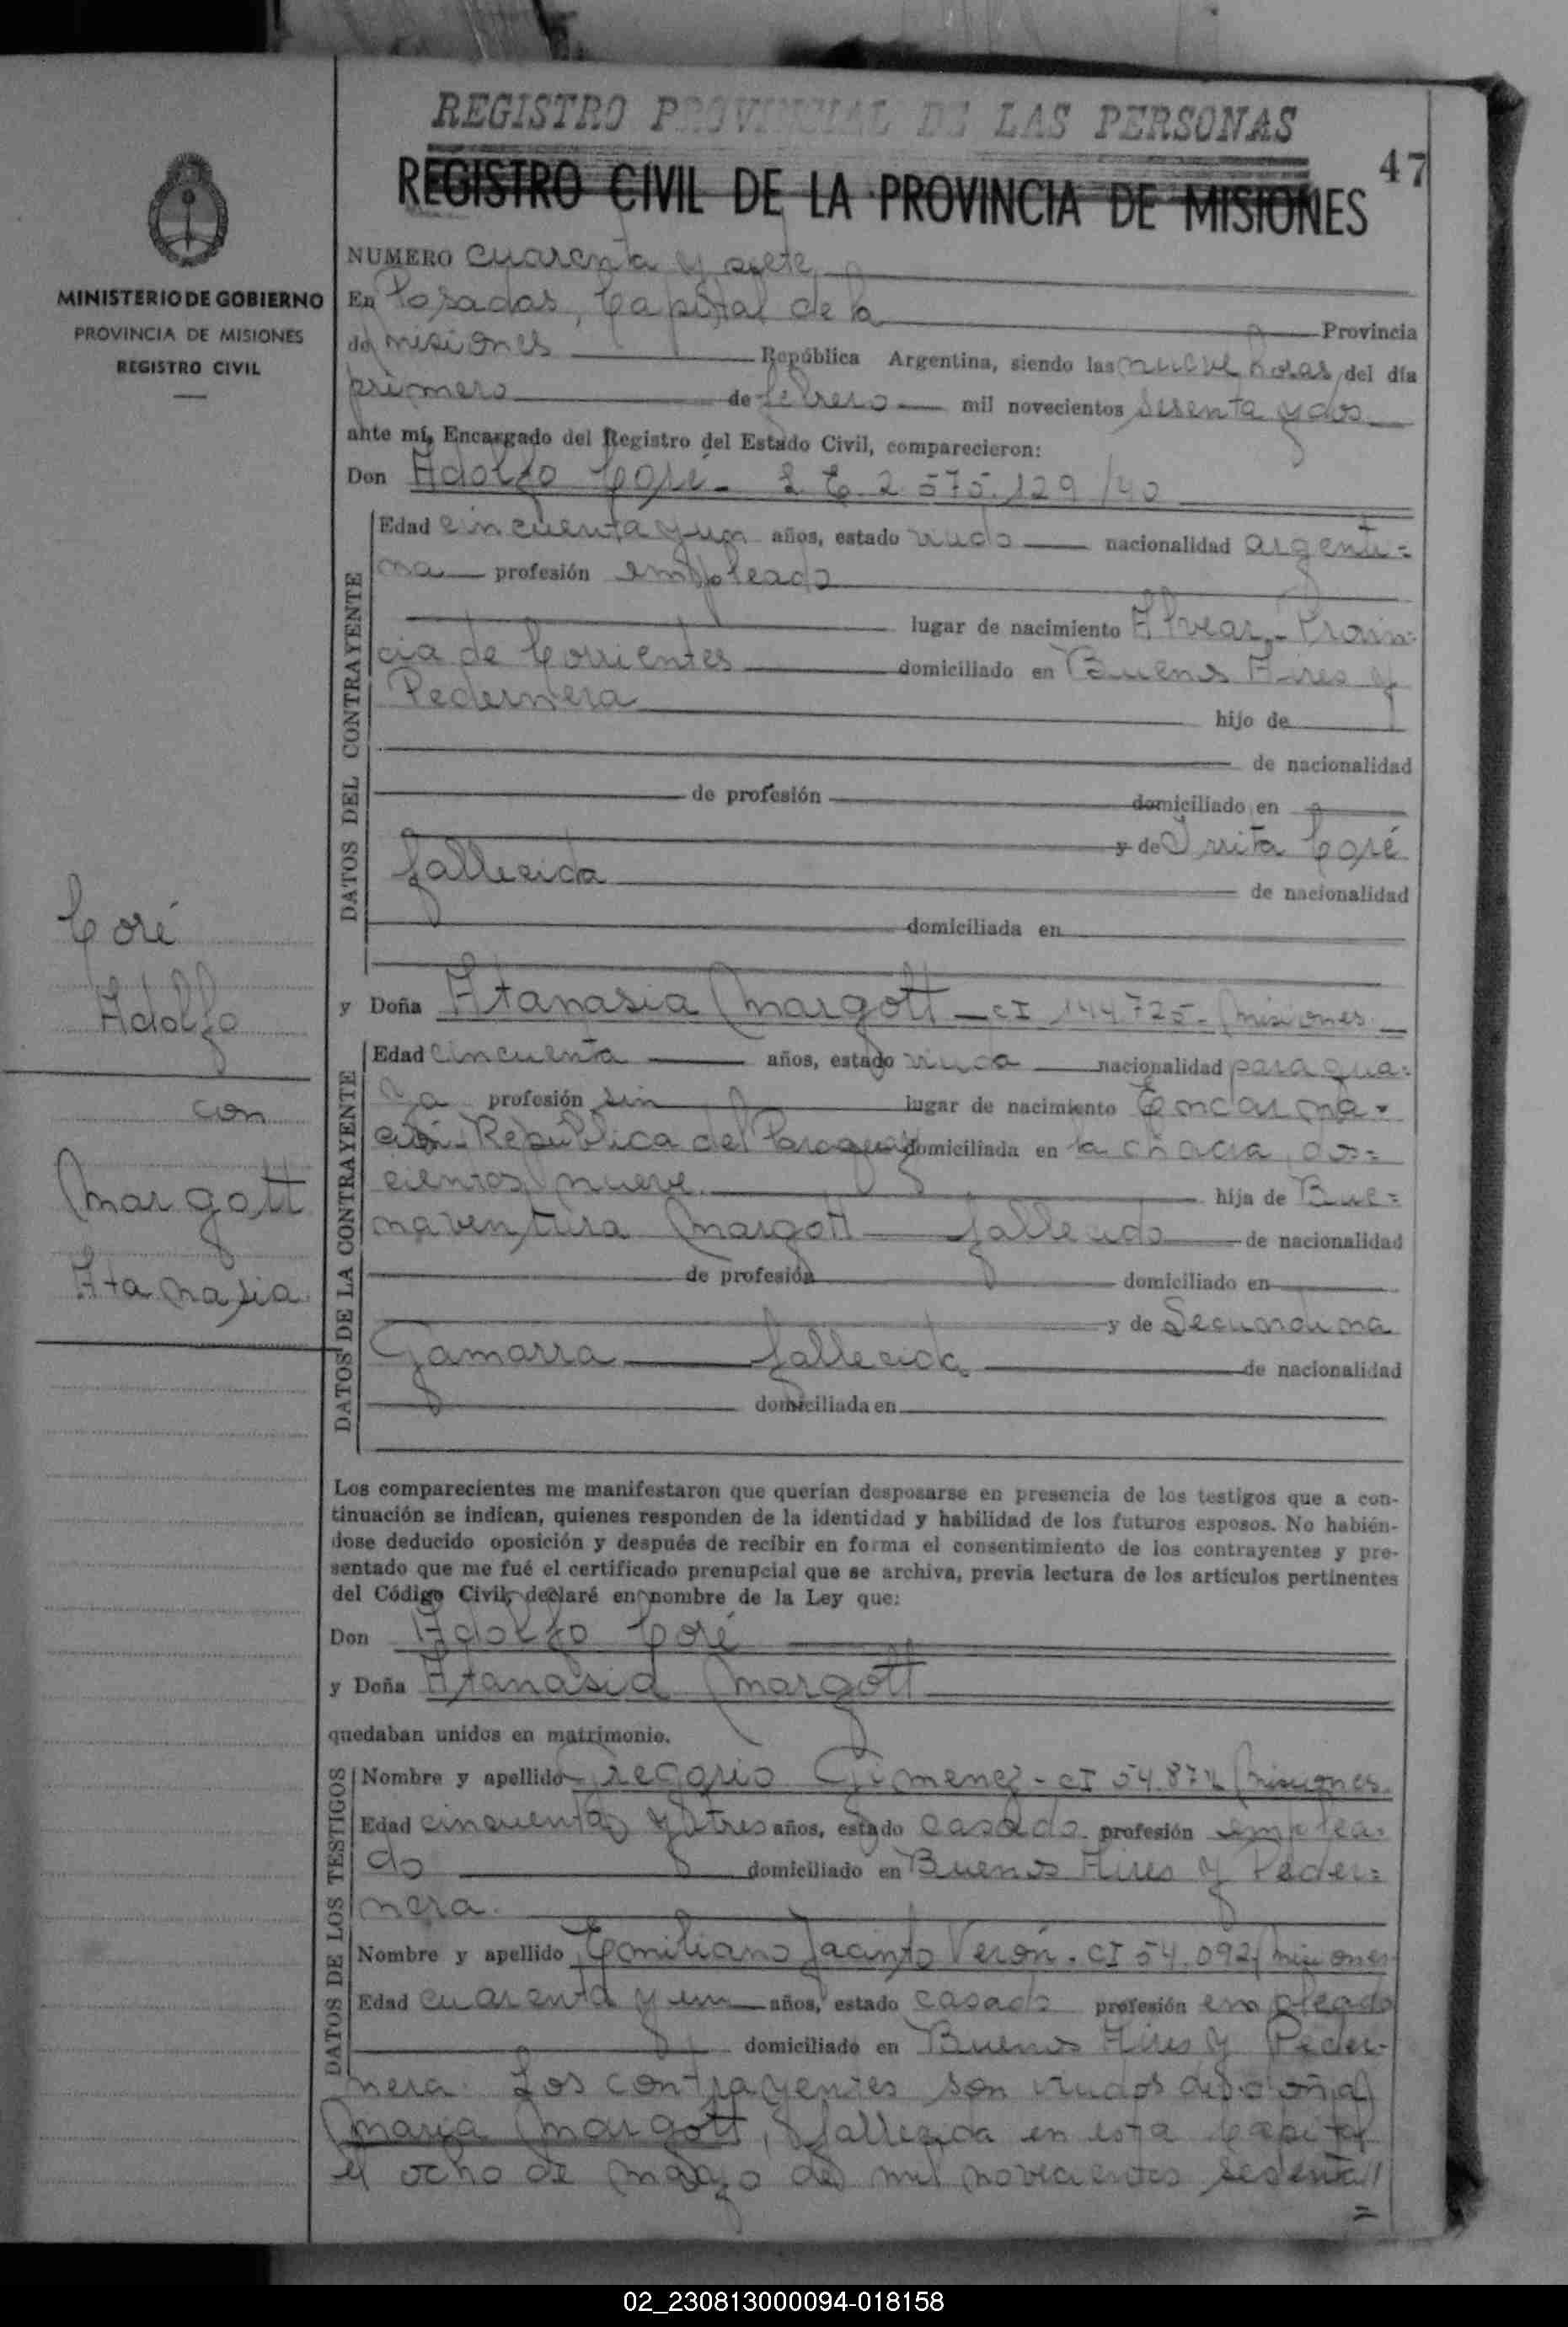 REGISTRO PROVINCIAL DE LAS PERSONAS
47
REGISTRO CIVIL DE LA PROVINCIA DE MISIONES
MINISTERIO DE GOBIERNO
PROVINCIA DE MISIONES
REGISTRO CIVIL
Coré
Adolfo
con
Margott
Atanasia.
NUMERO cuarenta y siete
En Posadas, Capital de la Provincia
de Misiones República Argentina, siendo las nueve horas del día
primero de febrero mil novecientos sesenta y dos
ante mí, Encargado del Registro del Estado Civil, comparecieron:
Don Adolfo Coré - L E. 2 575.129/40
DATOS DEL CONTRAYENTE
Edad cincuenta y un años, estado viudo nacionalidad argenti=
na profesión empleado
lugar de nacimiento Alvear - Provin=
cia de Corrientes domiciliado en Buenos Aires y
Pedernera hijo de
de nacionalidad
de profesión domiciliado en
y de Irrita Coré
fallecida de nacionalidad
domiciliada en
y Doña Atanasia Margott - CI 144.725 - Misiones
DATOS DE LA CONTRAYENTE
Edad cincuenta años, estado viuda nacionalidad paragua=
ya profesión sin lugar de nacimiento Encarna=
ción - República del Paraguay domiciliada en la chacra dos=
cientos nueve hija de Bue=
naventura Margott fallecido de nacionalidad
de profesión domiciliado en
y de Secundina
Gamarra fallecida de nacionalidad
domiciliada en
Los comparecientes me manifestaron que querían desposarse en presencia de los testigos que a con-
tinuación se indican, quienes responden de la identidad y habilidad de los futuros esposos. No habién-
dose deducido oposición y después de recibir en forma el consentimiento de los contrayentes y pre-
sentado que me fué el certificado prenupcial que se archiva, previa lectura de los artículos pertinentes
del Código Civil, declaré en nombre de la Ley que:
Don Adolfo Coré
y Doña Atanasia Margott
quedaban unidos en matrimonio.
DATOS DE LOS TESTIGOS
Nombre y apellido Gregorio Gimenez - CI 54.874 Misiones.
Edad cincuenta y tres años, estado casado profesión emplea=
do domiciliado en Buenos Aires y Peder=
nera.
Nombre y apellido Emiliano Jacinto Verón - CI 54.092 Misiones
Edad cuarenta y un años, estado casado profesión empleado
domiciliado en Buenos Aires y Peder-
nera. Los contrayentes son viudos de: doña
Maria Margott, fallecida en esta Capital
el ocho de mayo de mil novecientos sesenta//
=
02_230813000094-018158